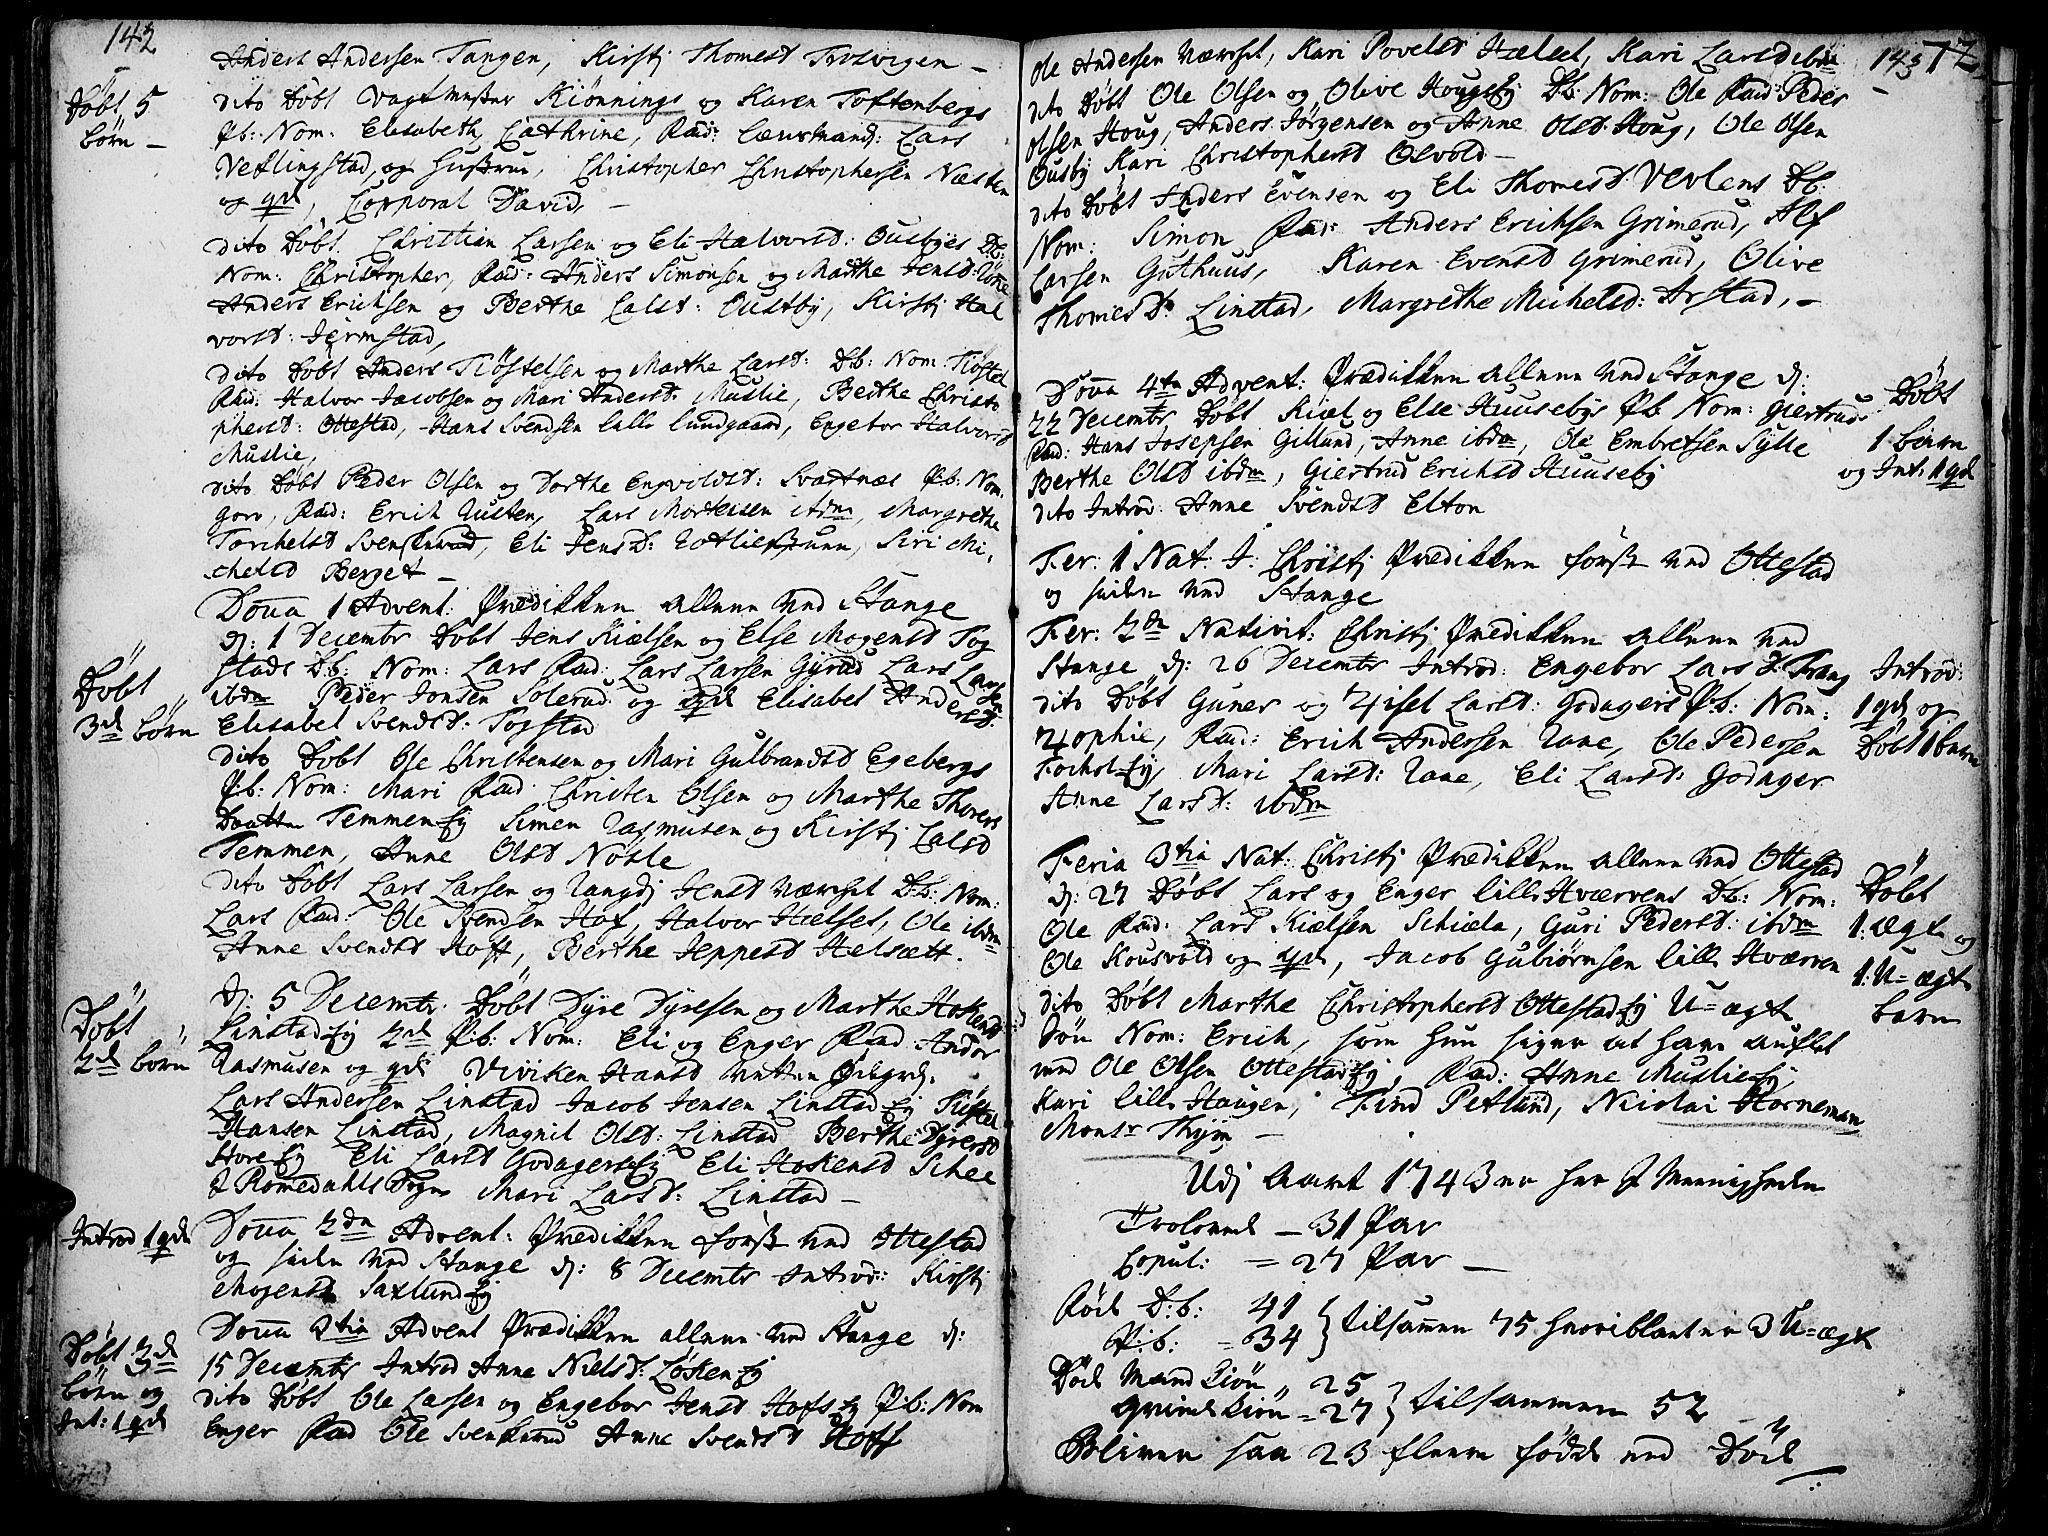 142
Anders Andersen Tangen, Kirstj Thomesd Torsvigen –
Døbt 5
børn –
dito Døbt Vagtmester Kiønnings og Karen Toftenbergs
P.b: Nom: Elisabeth Cathrine, Fad: Lars
Vestlingstad, og Hustrue, Christopher Christophersen Næsten
og qvd, Corporal David, –
dito Døbt Christian Larsen og Eli Halvorsd: Ousbyes D.b:
Nom: Christopher, Fad: Anders Simonsen og Marthe Jensd:
Anders Erichsen og Berthe Calsd: Oustby, Kirstj Hal
vorsd: Jermstad,
dito Døbt Anders Tiøstelsen og Marthe Larsd: D.b: Nom: Tiøstel
Fad: Halvor Jacobsen og Mari Andersd: Muslie, Berthe Christo
phersd: Ottestad, Hans Svendsen lille Lundgaard, Engebor Halvorsd
Muslie,
dito Døbt Peder Olsen og Dorthe Engvoldsd: Svartnæs P.b: Nom:
Goro, Fad: Erich Nusten, Lars Mortensen ibdm, Margrethe
Torchelsd Svenskerud, Eli Jensd: , Siri Mi-
chelsd Berget –
Dom 1 Advent: Prædikken allene ved Stange
d: 1 Decembr Døbt Jens Kielsen og Else Mogensd Tog
stads D.b: Nom: Lars Fad: Lars Larsen Gyrud Lars Larsen
Døbt
3de børn
ibdm Peder Jonsen Solerud og qvd Elisabet Andersd:
Elisabet Svendsd: Togstad
dito Døbt Ole Christensen og Mari Gulbrandsd Egebergs
P.b: Nom: Mari Fad Christen Olsen og Marthe Thorers
Daatter Temmen Ey Simen Rasmusen og Kirstj Calsd
Temmen, Anne Olsd Nøsle
dito Døbt Lars Larsen og Rangdj Jensd Værset D.b: Nom:
Lars Fad: Ole Svendsen Hof, Halvor Hælset, Ole ibdm
Anne Svendsd Hoff, Berthe Jeppesd Helsætt.
d: 5 Decembr. Døbt Dyre Dyresen og Marthe Hokensd
Døbt
2de børn
Linstad Ey 2de P.b: Nom: Eli og Enger Fad Andor
Rasmusen og qvd Viviken Hansd
Lars Andersen Linstad Jacob Jensen Linstad Ey Tiøstel
Hansen Linstad, Magnil Olsd: Linstad Berthe Dyresd
Hore Ey Eli Larsd Godagers Ey Eli Hokensd Schee
J Romedahls Sogn Mari Larsd: Linstad –
Introd 1 qvd
Dom 2den Advent: Prædikken først ved Ottestad
og siden ved Stange d: 8 Decembr Introd: Kirstj
Mogensd Saxlund Ey
Dom 3tia Advent Prædikken allene ved Stange d:
Døbt 3de
børn og
Int: 1 qvd
15 Decembr Introd Anne Nielsd: Løken Ey
dito Døbt Ole Larsen og Engebor Jensd Hofs Ey P.b: Nom
Enger Fad Ole Svenskerud Anne Svendsd Hoff
143 72
Ole Andersen Værset, Kari Povelsd Hælset, Kari Larsd ibdm
dito Døbt Ole Olsen og Olive Hougs Ey D.b: Nom: Ole Fad: Peder
Olsen Houg, Anders Jørgensen og Anne Olsd: Houg, Ole Olsen
Ousby Kari Christophersd Osvold –
dito Døbt Anders Evensen og Eli Thomesd: Vevlens D.b:
Nom: Simon Fad: Anders Erichsen Grimerud, Alf
Larsen Guthuus, Karen Evensd Grimerud, Olive
Thomesd: Linstad, Margrethe Michelsd: Arstad, –
Dom 4te Advent: Prædikken allene ved Stange d:
22 Decembr Døbt Kiel og Else Huusebys P.b: Nom: Giertrud
Døbt
1 barn
og Int: 1 qvd
Fad: Hans Josepsen Gillund, Anne ibdm, Ole Embretsen Sylte
Berthe Olsd ibdm, Giertrud Erichsd Huuseby
dito Introd: Anne Svendsd Elton
Fer: 1 Nat: J: Christj Prædikken først ved Ottestad
og siden ved Stange
Fer: 2de Nativit: Christj Prædikken allene ved
Stange d: 26 Decembr Introd: Engebor Lars D: Frang
Introd:
1 qvd og
Døbt 1 barn
dito Døbt Guner og Zisel Larsd: Godagers P.b: Nom:
Zophie, Fad: Erich Andersen Rane, Ole Pedersen
Fochol Ey, Mari Larsd: Rane, Eli Larsd: Godager
Anne Larsd: ibdm
Feria 3tia Nat: Christj Prædikken allene ved Ottestad
d: 27 Døbt Lars og Enger lille Hværvens D.b: Nom:
Døbt
1. ægte og
1. U=ægte
barn
Ole Fad: Lars Kielsen Schiela, Guri Pedersd: ibdm
Ole Kousvold og qvd, Jacob Gubiørnsen lille Hværven
dito Døbt Marthe Christophersd Ottestad Ey U=ægte
Søn Nom: Erich, som hun siger at have auflet
med Ole Olsen Ottestad Ey, Fad: Anne Muslie Ey,
Kari lille Haugen, Find Petlund, Nicolai Horneman
Monsr Thym –
Udj Aaret 1743 er her J Menigheden
Trolovede – 31 Par
Copul: = 27 Par –
Fød D:b: 41
P:b: = 34 } tilsammen 75 hvoriblant er 3 U=ægte
Død Mand Kiøn „ 25
Qvinde Kiøn = 27 } tilsammen 52
Bliver saa 23 fleere fødde end Død